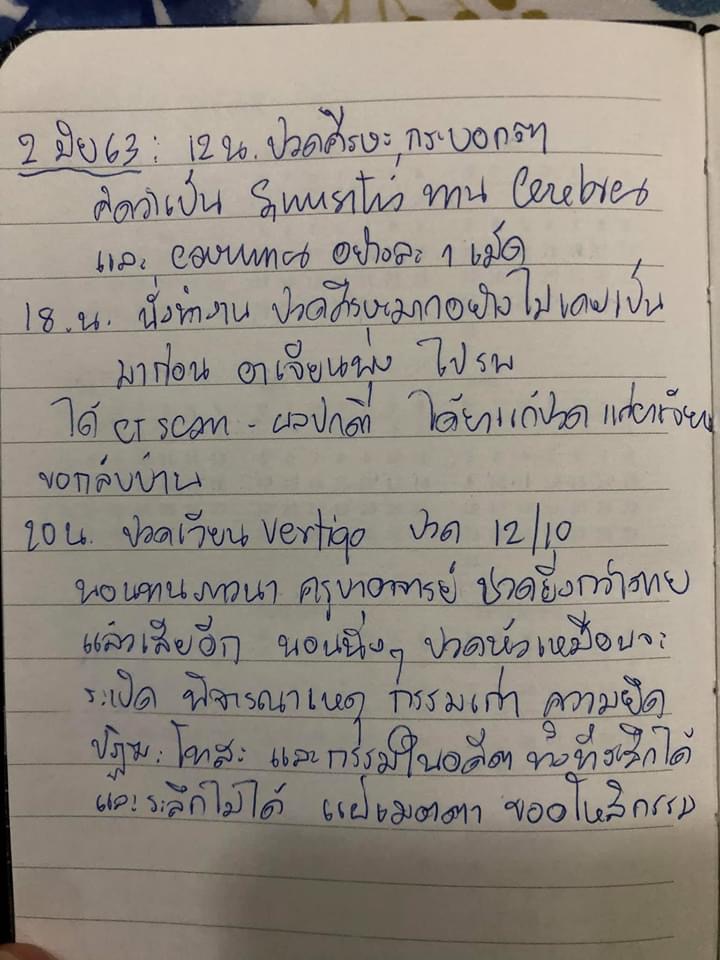 2 มิย 63 : 12 น. ปวดศีรษะ กระบอกตา
คิดว่าเป็น ทาน Cerebrex
และ อย่างละ 1 เม็ด
18.น. นั่งทำงาน ปวดศีรษะมากอย่างไม่เคยเป็น
มาก่อน อาเจียนพุ่ง ไป รพ
ได้ CT scan - ผลปกติ ได้ยาแก้ปวด แก้อาเจียน
ขอกลับบ้าน
20 น. ปวดเวียน vertigo ปวด 12/10
นอนภาวนา ครูบาอาจารย์ ปวดยิ่งกว่าตาย
แล้วเสียอีก นอนนิ่งๆ ปวดหัวเหมือนจะ
ระเบิด พิจารณาเหตุ กรรมเก่า ความยึด
ปฏิฆะ โทสะ และกรรมในอดีต ทั้งที่ระลึกได้
และระลึกไม่ได้ แผ่เมตตา ขออโหสิกรรม